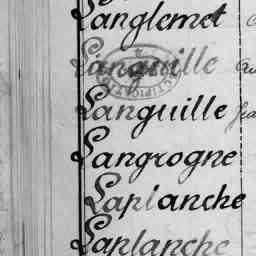 Langlemet
Languille
Languille
Langrogne
Laplanche
Laplanche